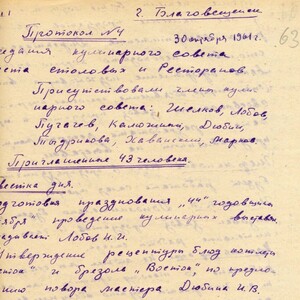 г. Благовещенск
Протокол №4
30 октября 1961г. 63
седания кулинарного совета
еста столовых и Ресторанов.
Присутствовали члены кули-
нарного совета: Шелков, Лобов,
Пугачев, Калюжный, Дюбин,
Тыдрикова, Хаванский, Марков.
Приглашенные 43 человека.
вестка дня.
одготовка празднования „44" годовщины
ября проведение кулинарных выставок
Лобов И.И.
тверждение рецептуры блюд котлеты
сток" и брезола „Восток" по предло-
нию повара мастера Дюбина И.В.